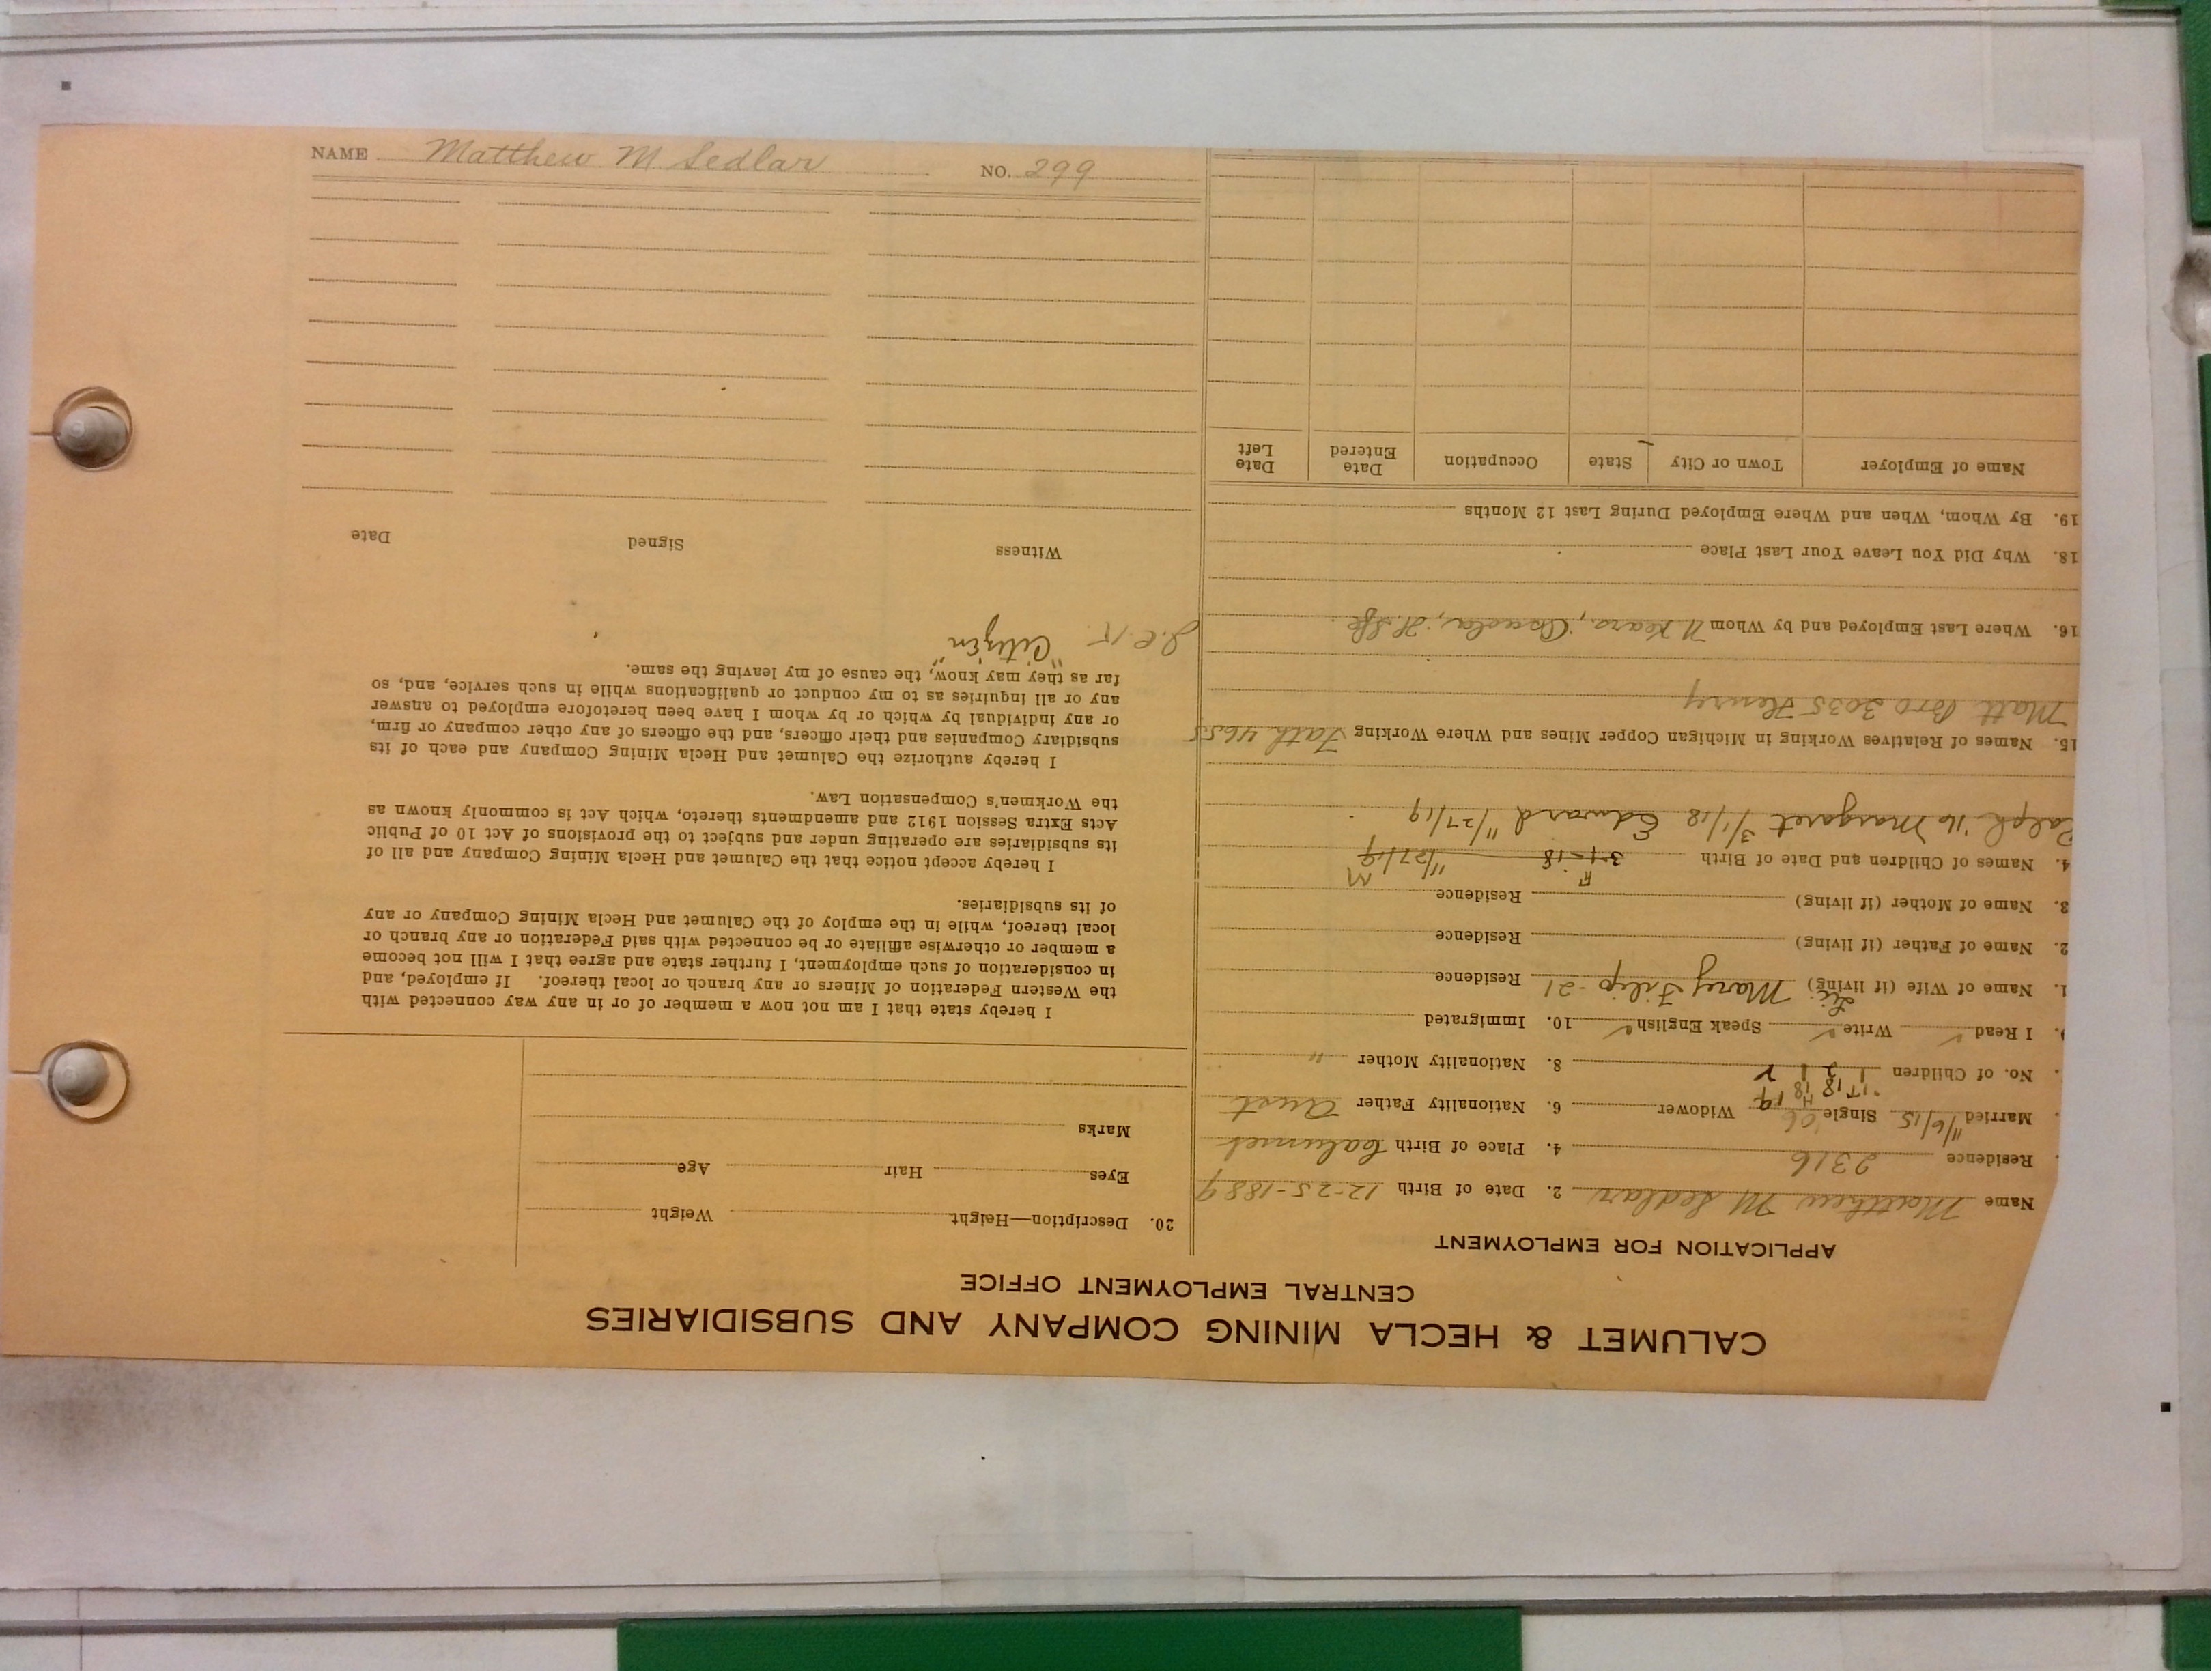 NAME Matthew M Sedlar NO. 299
CALUMET & HECLA MINING COMPANY AND SUBSIDIARIES
CENTRAL EMPLOYMENT OFFICE
APPLICATION FOR EMPLOYMENT
Name Matthew M Sedlar 2. Date of Birth 12-25-1889
Residence 2316 4. Place of Birth Calumet
Married 11/6/15 Single '06 Widower 6. Nationality Father Aust
'17 18 18 19
No. of Children 1 2 8. Nationality Mother "
I Read ✓ Write ✓ Speak English ✓ 10. Immigrated
1. Name of Wife (if living) Mary Filip - 21 Residence
2. Name of Father (if living) Residence
3. Name of Mother (if living) Residence
F M
4. Names of Children and Date of Birth 3-1-18 11/27/19
Ralph '16 Margaret 3/1/18 Edward 11/27/19
15. Names of Relatives Working in Michigan Copper Mines and Where Working Fath. 4655
Matt Bro 3035 Henry
16. Where Last Employed and by Whom
18. Why Did You Leave Your Last Place
19. By Whom, When and Where Employed During Last 12 Months
Name of Employer Town or City State Occupation Date Entered Date Left
20. Description—Height Weight
Eyes Hair Age
Marks
I hereby state that I am not now a member of or in any way connected with
the Western Federation of Miners or any branch or local thereof. If employed, and
in consideration of such employment, I further state and agree that I will not become
a member or otherwise affiliate or be connected with said Federation or any branch or
local thereof, while in the employ of the Calumet and Hecla Mining Company or any
of its subsidiaries.
I hereby accept notice that the Calumet and Hecla Mining Company and all of
its subsidiaries are operating under and subject to the provisions of Act 10 of Public
Acts Extra Session 1912 and amendments thereto, which Act is commonly known as
the Workmen's Compensation Law.
I hereby authorize the Calumet and Hecla Mining Company and each of its
subsidiary Companies and their officers, and the officers of any other company or firm,
or any individual by which or by whom I have been heretofore employed to answer
any or all inquiries as to my conduct or qualifications while in such service, and, so
far as they may know, the cause of my leaving the same.
"Citizen"
Witness Signed Date